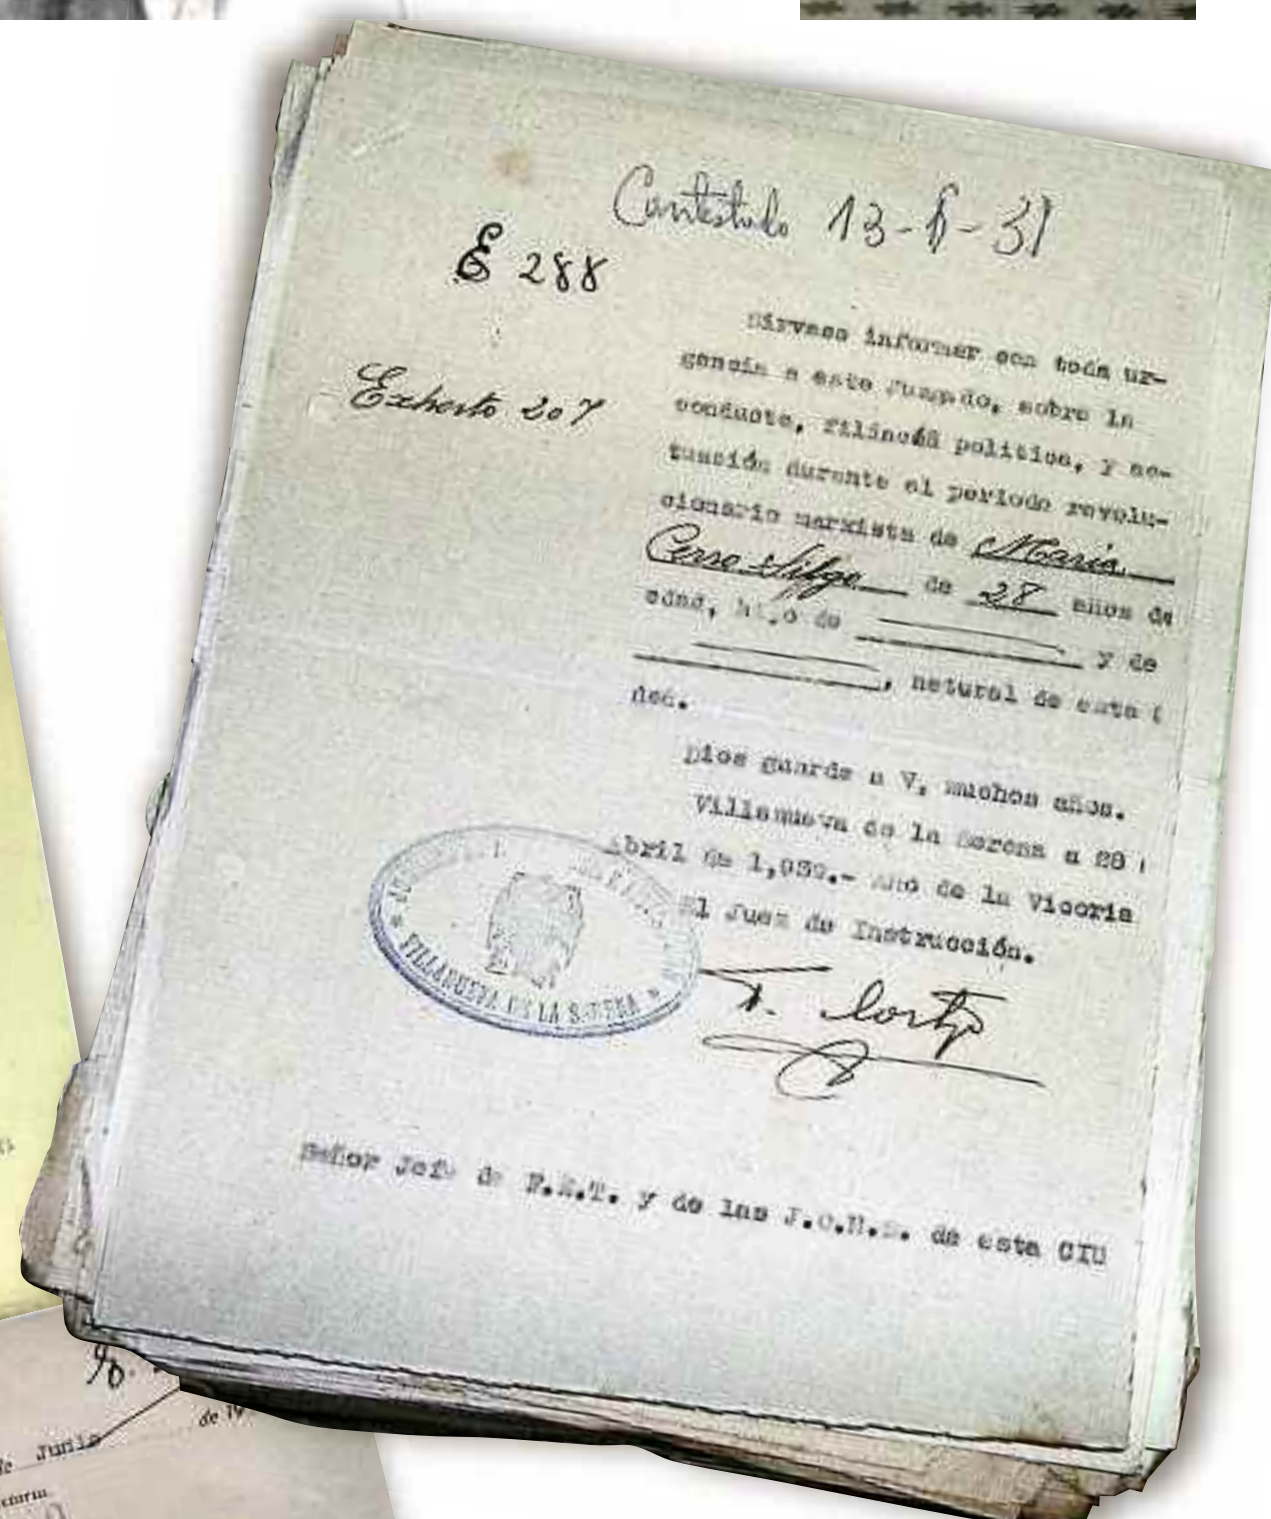 Contestado 13-6-39
E 288
Exhorto 207
Sírvase informar con toda ur-
gencia a este Juzgado, sobre la
conducta, filiación política, y ac-
tuación durante el período revolu-
cionario marxista de María
Cerro de 28 años de
edad, hijo de y de
, natural de esta
dad.
Dios guarde a V, muchos años.
Villanueva de la Serena a 28
Abril de 1,939.- Año de la Vicoria
El Juez de Instrucción.
VILLANUEVA DE LA SERENA
Señor Jefe de F.E.T. y de las J.O.N.S. de esta CIU
de Junio
de 19